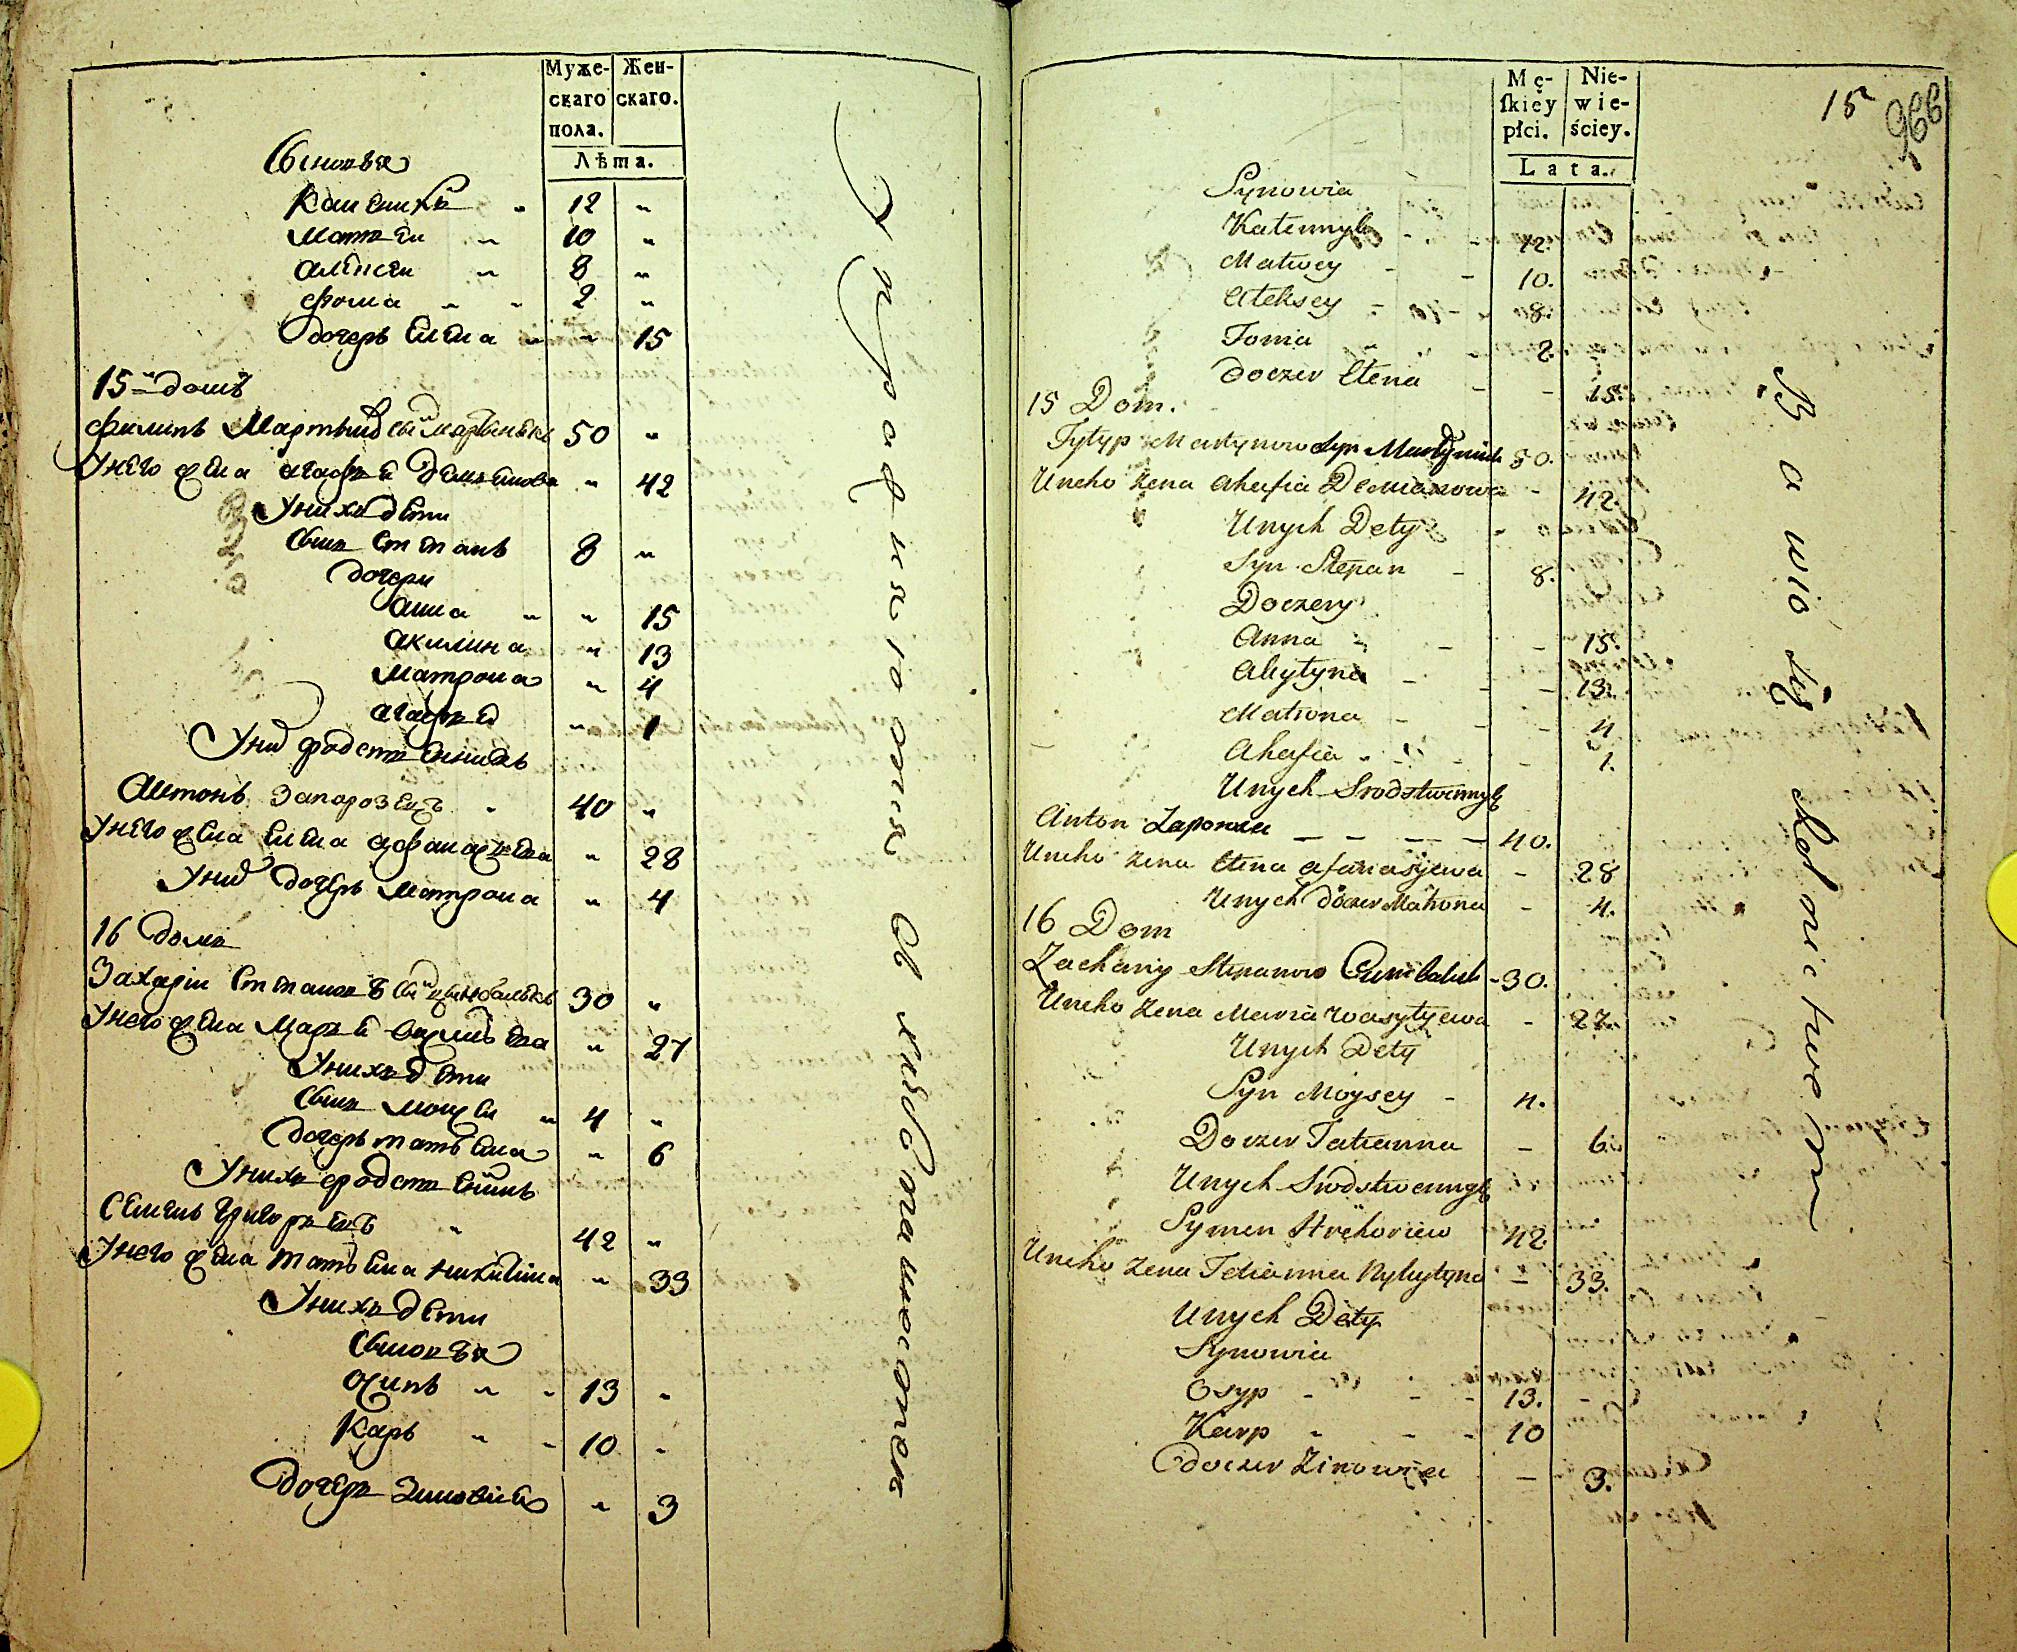 Муже-
скаго
пола.
Жен-
скаго.
Лѣта.
Сыновья
12 "
Матвеи " 10 "
Алексеи " 8 "
Фома " " 2 "
дочерь Елена " " 15
15й домъ
Филипъ Мартынов 50 "
Унего жена Агафиа Демьянова " 42
Унихъ дети
Сынъ Степанъ 8 "
дочери
Анна " " 15
Акилина " 13
Матрона " 4
Агафиа " 1
Уних сродственникъ
Антонъ Запорозецъ " 40 "
Унего жена Елена Афанасьева " 28
Уних дочерь Матрона " 4
16 домъ
Захарiи Степановъ 30 "
Унего жена Мариа Василиева " 27
Унихъ дети
Сынъ Моисеи " 4 "
дочерь татьяна " 6
Унихъ сродственникъ
Семенъ Григорьевъ " 42 "
Унего жена татьяна Никитина " 33
Унихъ дети
Сыновья
Осипъ " " 13 "
Карпъ " " 10 "
дочерь Зиновiа " 3
Упражняются в хлебопашестве
Mę-
ſkiey
płci.
Nie-
wie-
ściey.
Lata.
15
996
Synowia
12.
Matwey - - 10.
Aleksey - 8.
Foma 2.
Doczer Elena - - 15.
15 Dom.
Fylyp Martynow Syn 50.
Uneho Zena Ahafia Demianowa - 42.
Unych Dety
Syn Stepan - 8.
Doczery
Anna - - - 15.
Akylyna - - - 13.
Matrona - - - 4
Ahafia - - - 1.
Unych Srodstwennyk
Anton Zaporozec - - - - 40.
Uneho Zena Elena Afanasyewa - 28
Unych doczer Matrona - 4.
16 Dom
Zachariy Stepanow - 30.
Uneho Zena Maria Wasylyewa - 27.
Unych Dety
Syn Moysey - 4.
Doczer Tatianna - 6.
Unych Srodstwennyk
Symen Hrehoriew 42.
Uneho Zena Tatianna Nykytyna - 33.
Unych Dety
Synowia
Osyp - - - 13. -
Karp - - - 10
doczer Zinowia - 3.
Bawią się Rolnictwem